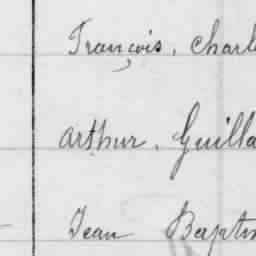 François, Charl
Arthur, Guilla
Jean Baptis